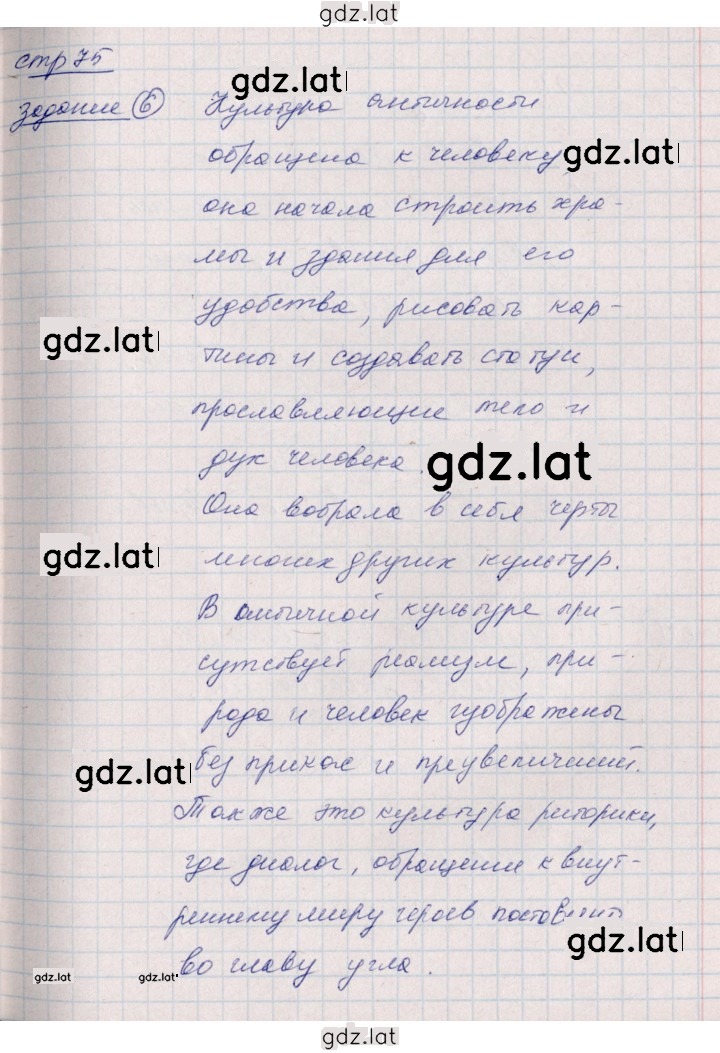 gdz.lat
стр 75
gdz.lat
задание 6 Культура античности
обращена к человеку, gdz.lat
она начала строить хра-
мы и здания для его
удобства, рисовать кар-
gdz.lat
тины и создавать статуи,
прославляющие тело и
дух человека. gdz.lat
Она вобрала в себя черты
gdz.lat
многих других культур.
В античной культуре при-
сутствует реализм, при-
рода и человек изображены
gdz.lat
без прикрас и преувеличений.
Также это культура риторики,
где диалог, обращение к внут-
реннему миру героев
gdz.lat
во главу угла.
gdz.lat gdz.lat
gdz.lat